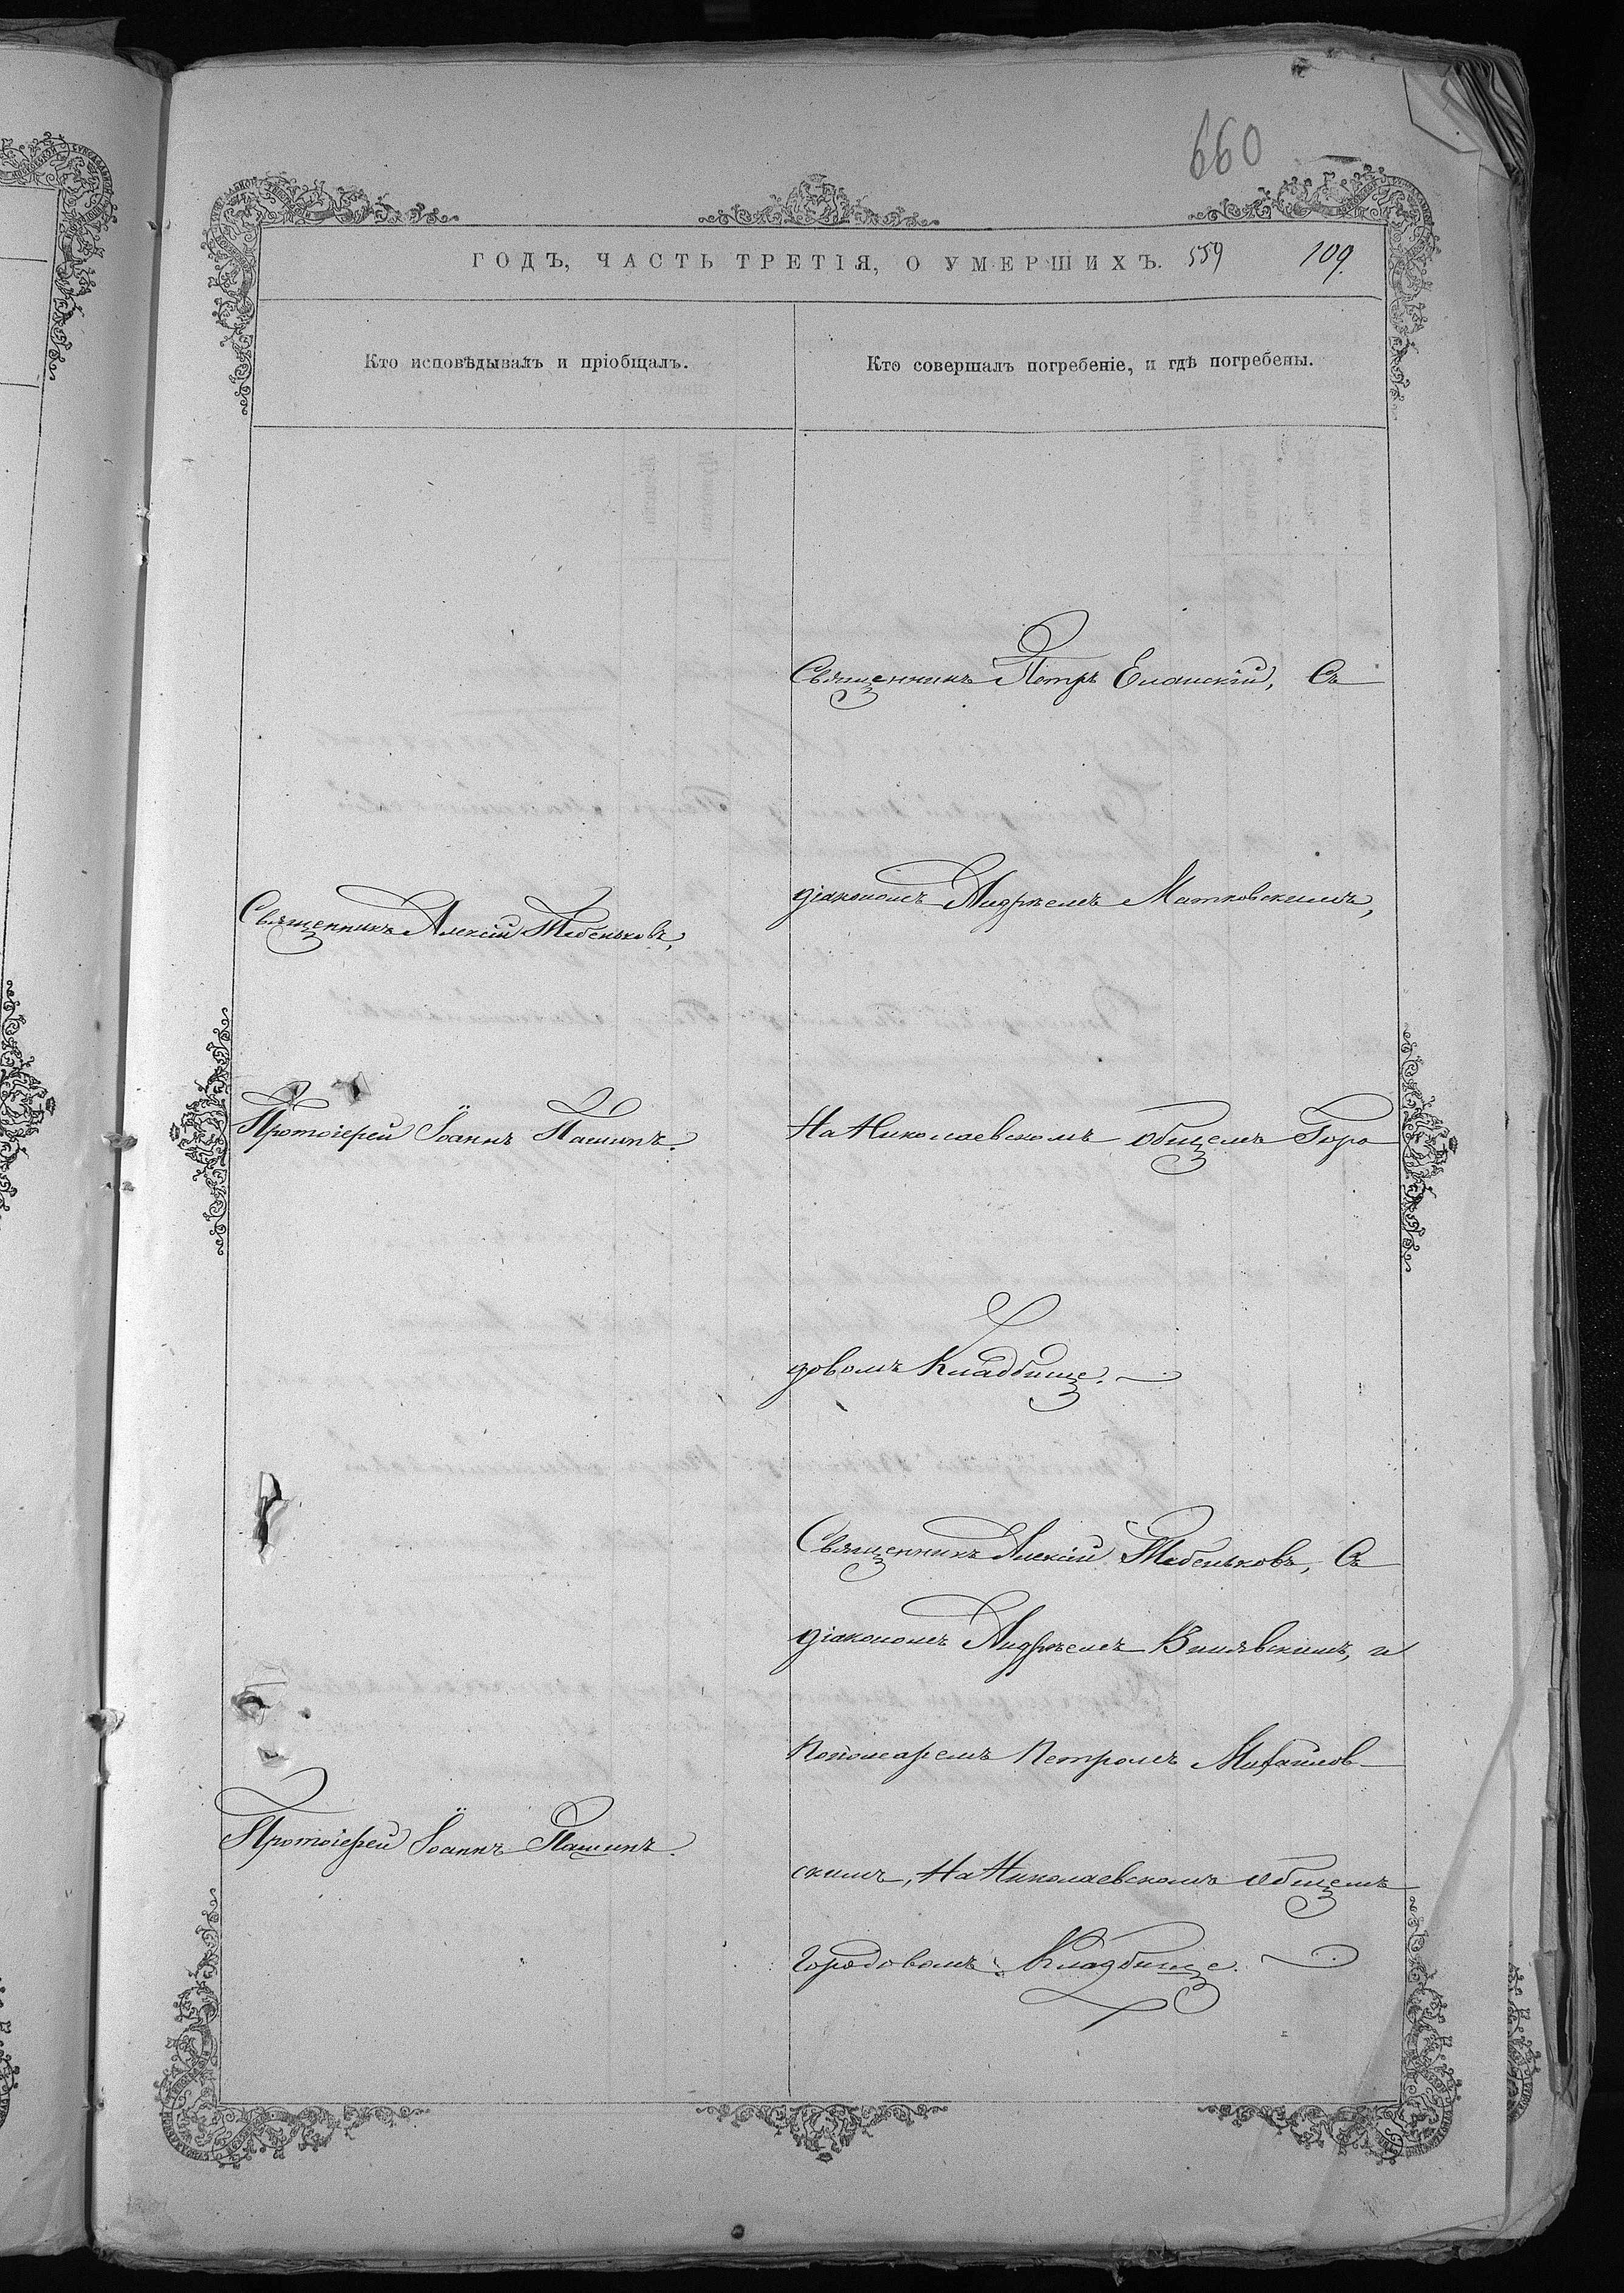 660
ГОДЪ, ЧАСТЬ ТРЕТІЯ, О УМЕРШИХЪ. 559 109.
Кто исповѣдывалъ и пріобщалъ.
Кто совершалъ погребеніе, и гдѣ погребены.
Священникъ Алексій Тебеньковъ,
Протоіерей Іоаннъ Пашинъ.
Протоіерей Іоаннъ Пашинъ.
Священникъ Петръ Еланскій, Съ
діакономъ Андреемъ Матковскимъ,
На Николаевскомъ общемъ Горо
довомъ Кладбище.
Священникъ Алексій Тебеньковъ, Съ
діакономъ Андреемъ и
Пономаремъ Петромъ Михайлов
скимъ, На Николаевскомъ общемъ
городовомъ Кладбище.